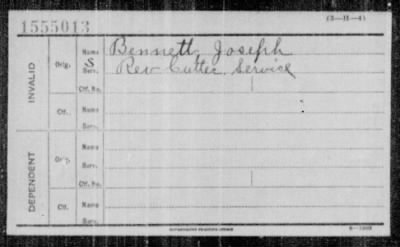 1555013
(3—H—4)
INVALID
Orig.
S
Name
Bennett, Joseph
Serv.
Rev Cutter Service
Ctf. No.
Ctf.
Name
Serv.
DEPENDENT
Orig.
Name
Serv.
Ctf. No.
Ctf.
Name
Serv.
GOVERNMENT PRINTING OFFICE